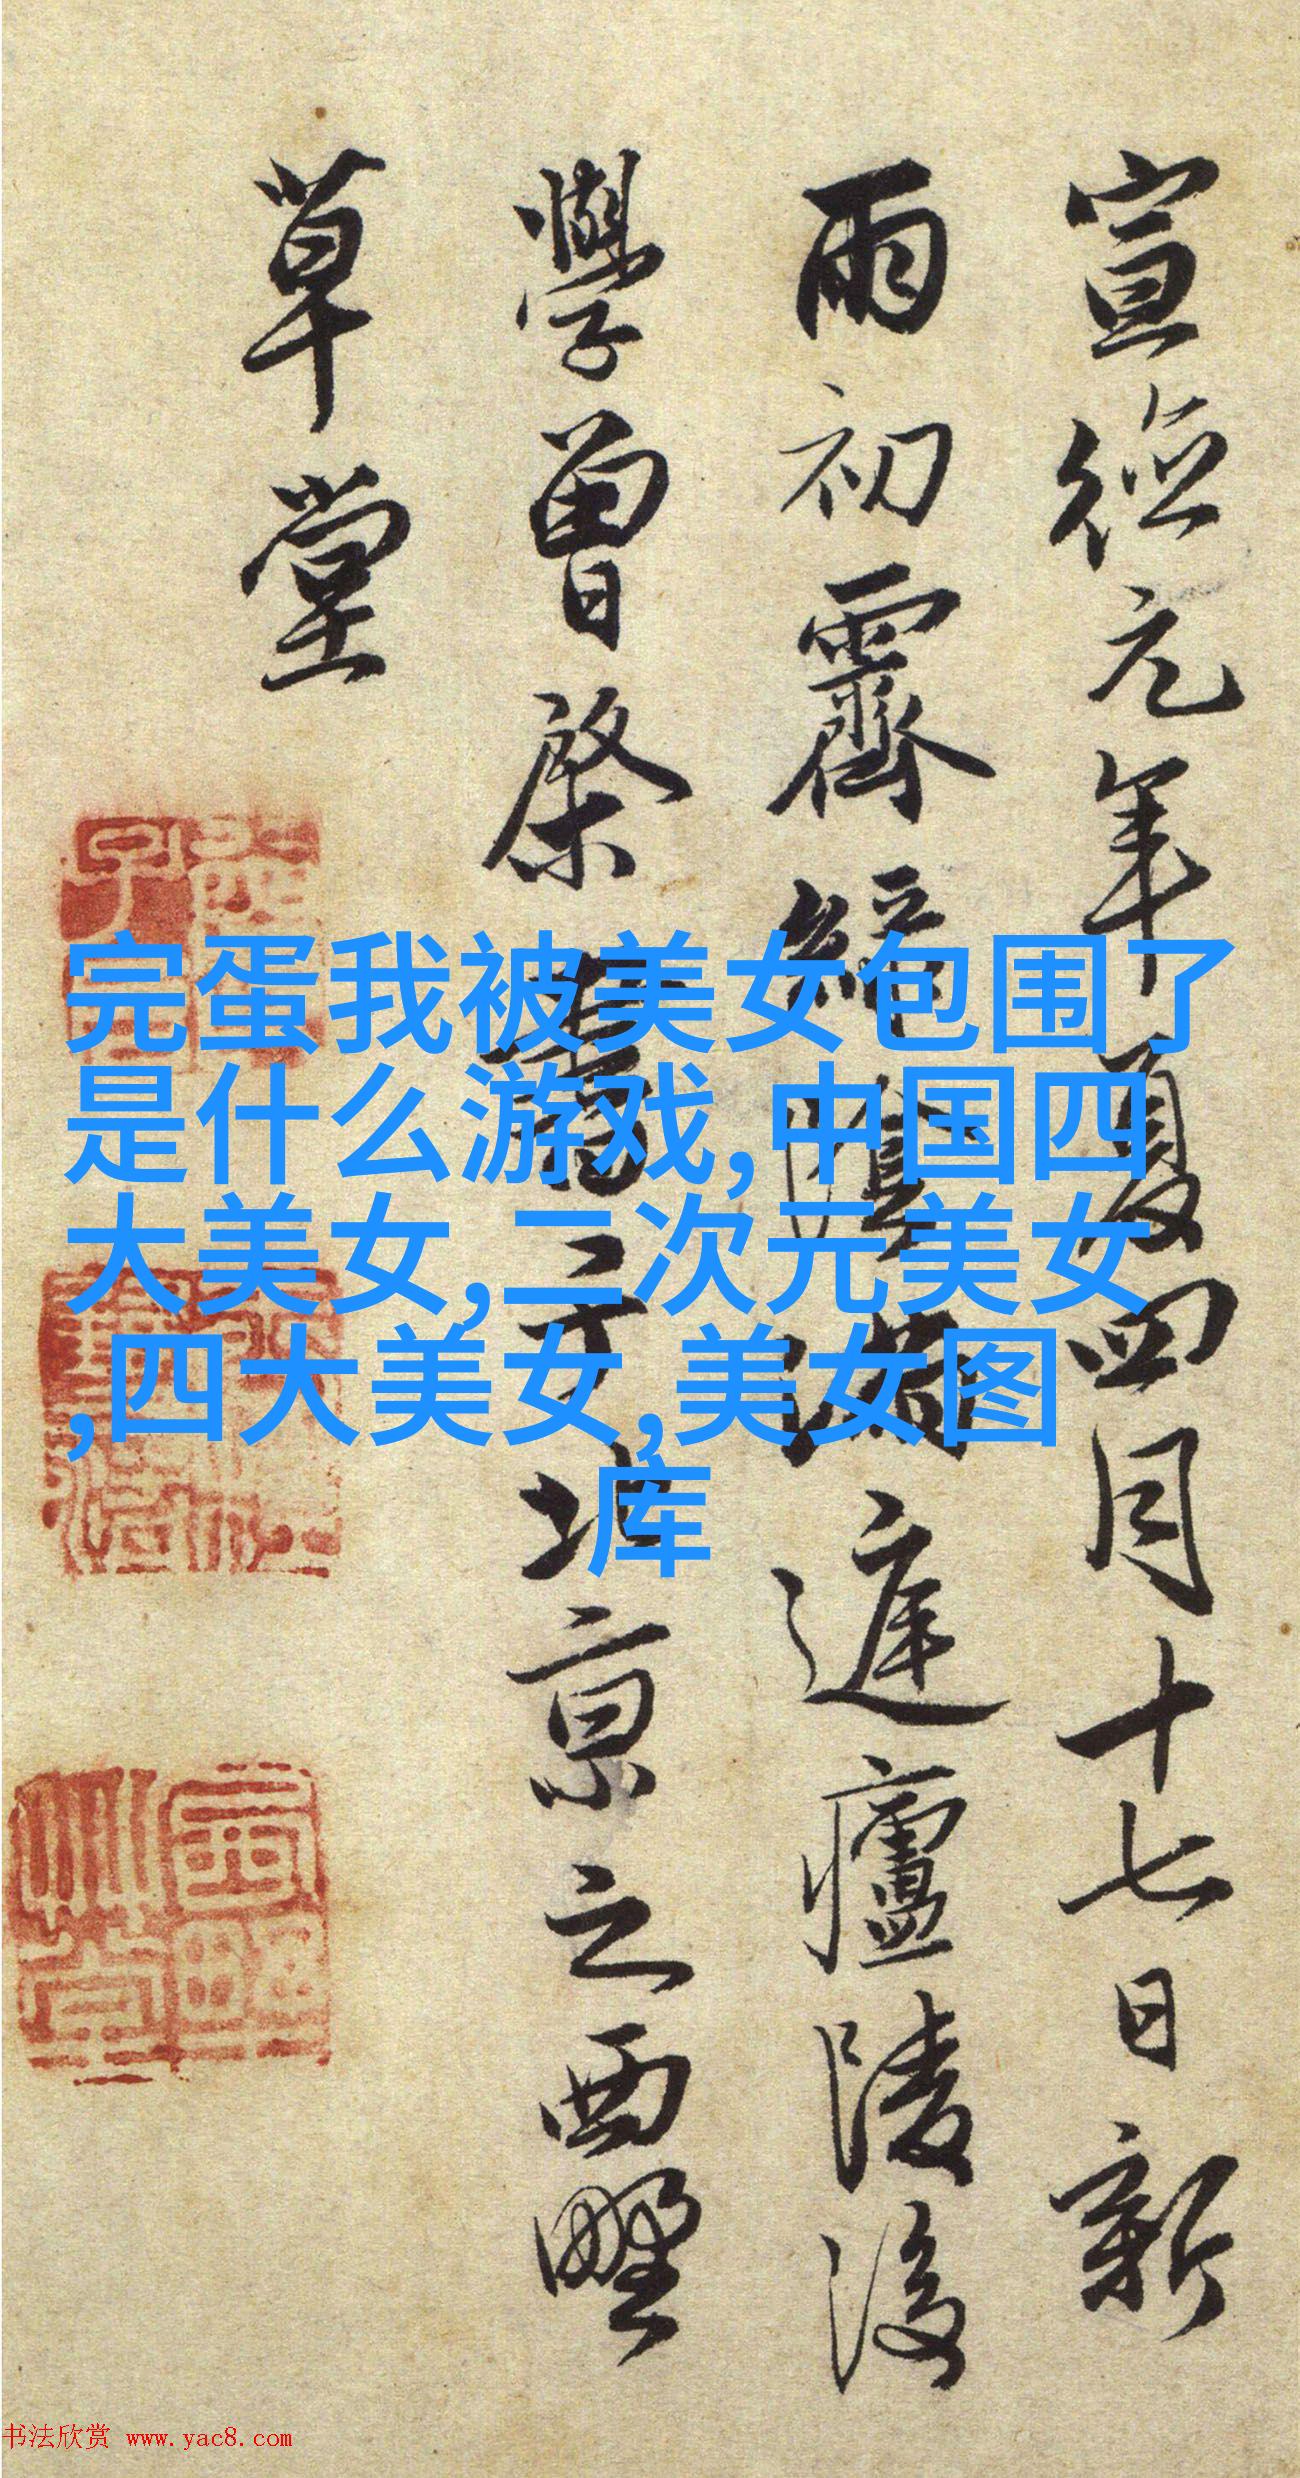 宣德元年夏四月十七日新
雨初霽綠陰滿庭廬陵後
學曾棨書于北京之西墅
草堂
完蛋我被美女包围了
是什么游戏,中国四
大美女,二次元美女
,四大美女,美女图
库
书法欣赏 www.yac8.com